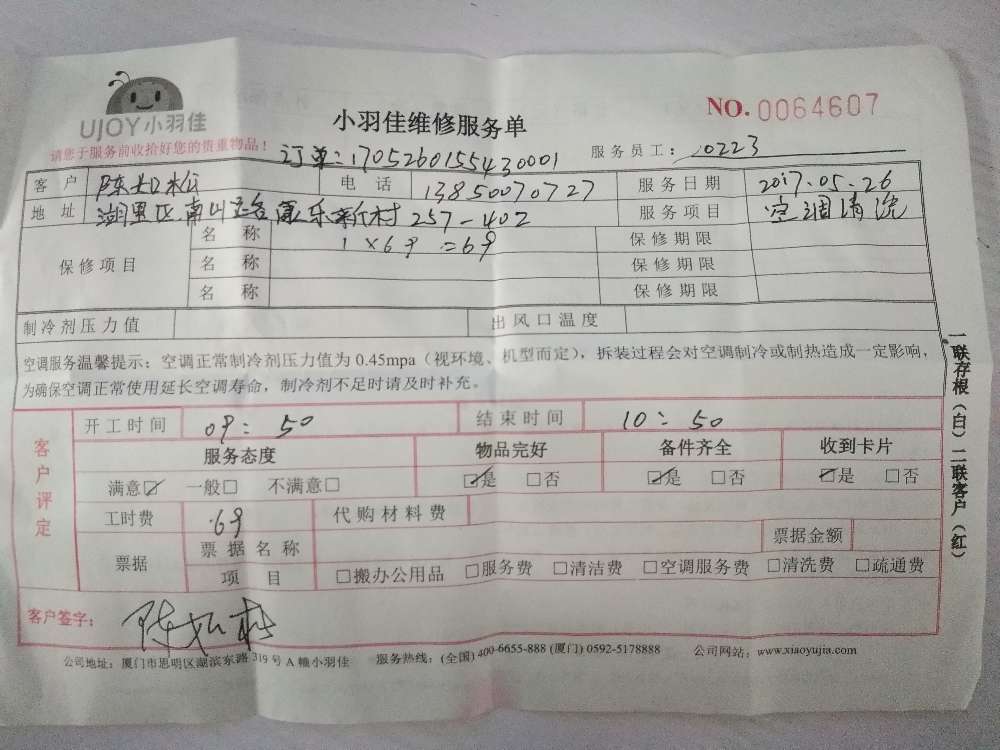 UJOY小羽佳
小羽佳维修服务单
NO.0064607
请您于服务前收拾好您的贵重物品！
订单：1705260155430001
服务员工： 10223
客户 陈 松 电话 13850070727 服务日期 2017.05.26
地址 湖里区南山路 康乐新村257-402 服务项目 空调清洗
保修项目 名称 1×69=69 保修期限
名称 保修期限
名称 保修期限
制冷剂压力值 出风口温度
空调服务温馨提示：空调正常制冷剂压力值为0.45mpa（视环境、机型而定），拆装过程会对空调制冷或制热造成一定影响，
为确保空调正常使用延长空调寿命，制冷剂不足时请及时补充。
客户评定
开工时间 09：50 结束时间 10：50
服务态度 物品完好 备件齐全 收到卡片
满意☑ 一般□ 不满意□ ☑是 □否 ☑是 □否 ☑是 □否
工时费 69 代购材料费
票据 票据名称 票据金额
项目 □搬办公用品 □服务费 □清洁费 □空调服务费 □清洗费 □疏通费
客户签字： 陈 松
公司地址：厦门市思明区湖滨东路319号A幢小羽佳 服务热线：(全国) 400-6655-888 (厦门) 0592-5178888 公司网站：www.xiaoyujia.com
一联存根（白）二联客户（红）